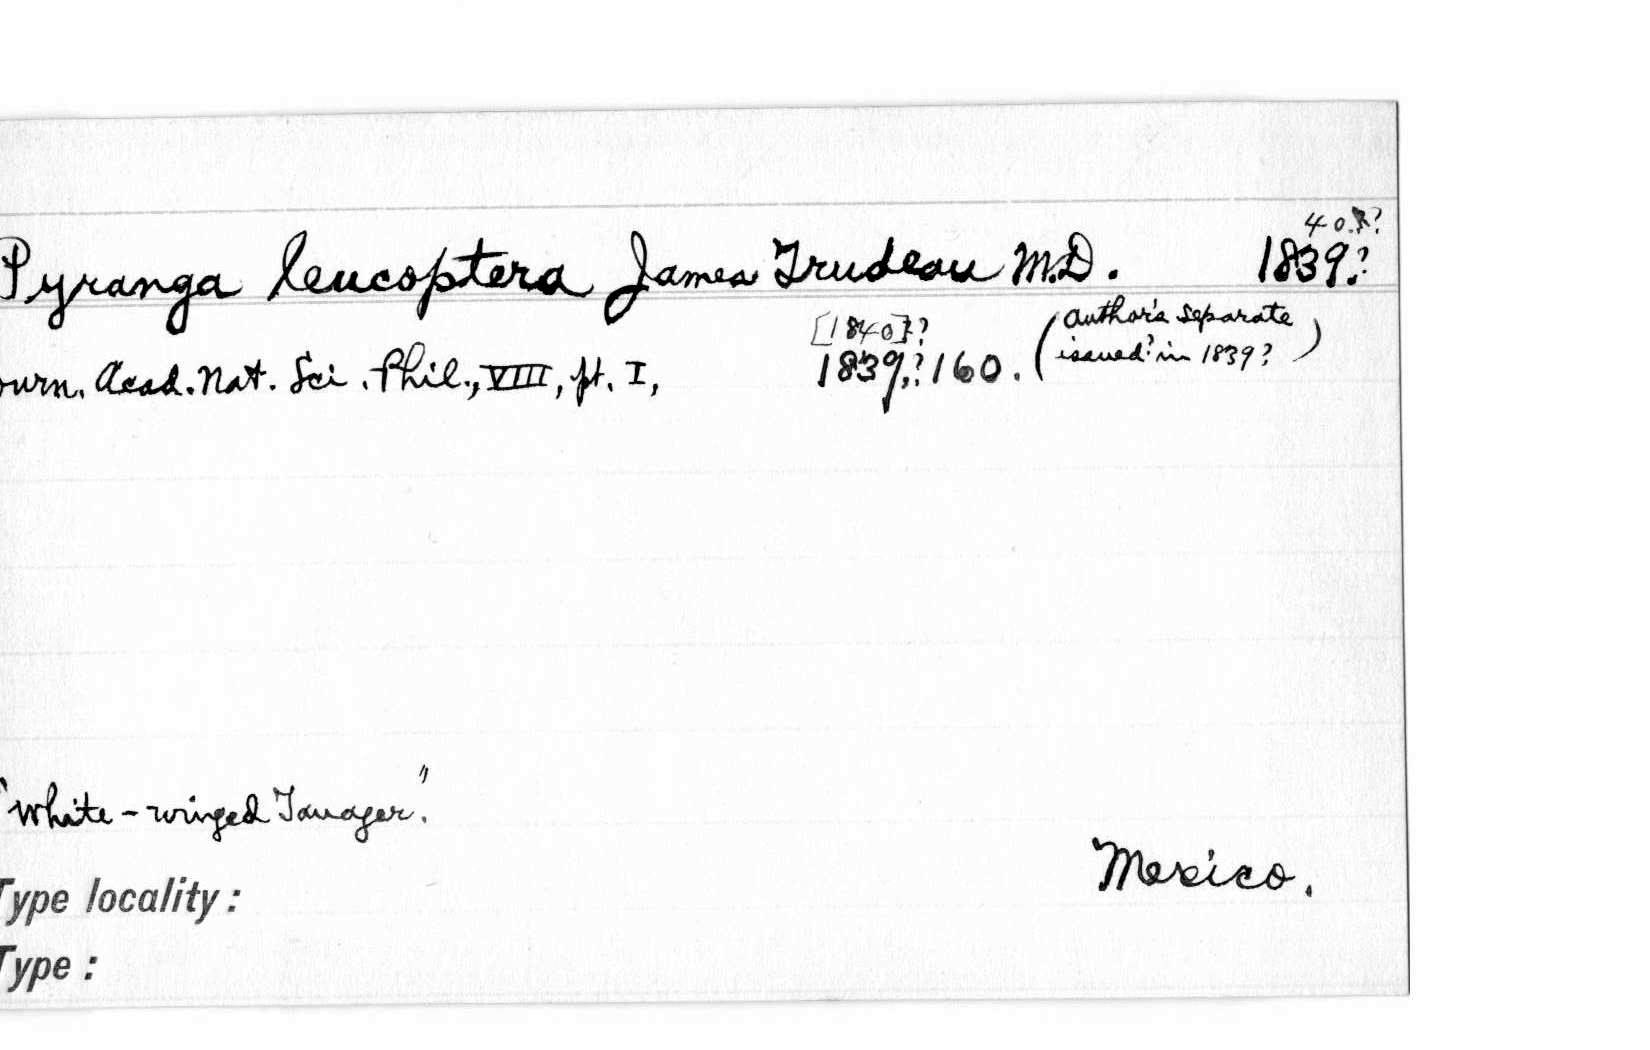 40.?
Pyranga leucoptera James Trudeau M.D. 1839?
[1840]? (author's separate
ourn. Acad. Nat. Sci. Phil., VIII, pt. I, 1839,? 160. issued? in 1839?)
"White-winged Tanager."
Mexico.
Type locality:
Type: